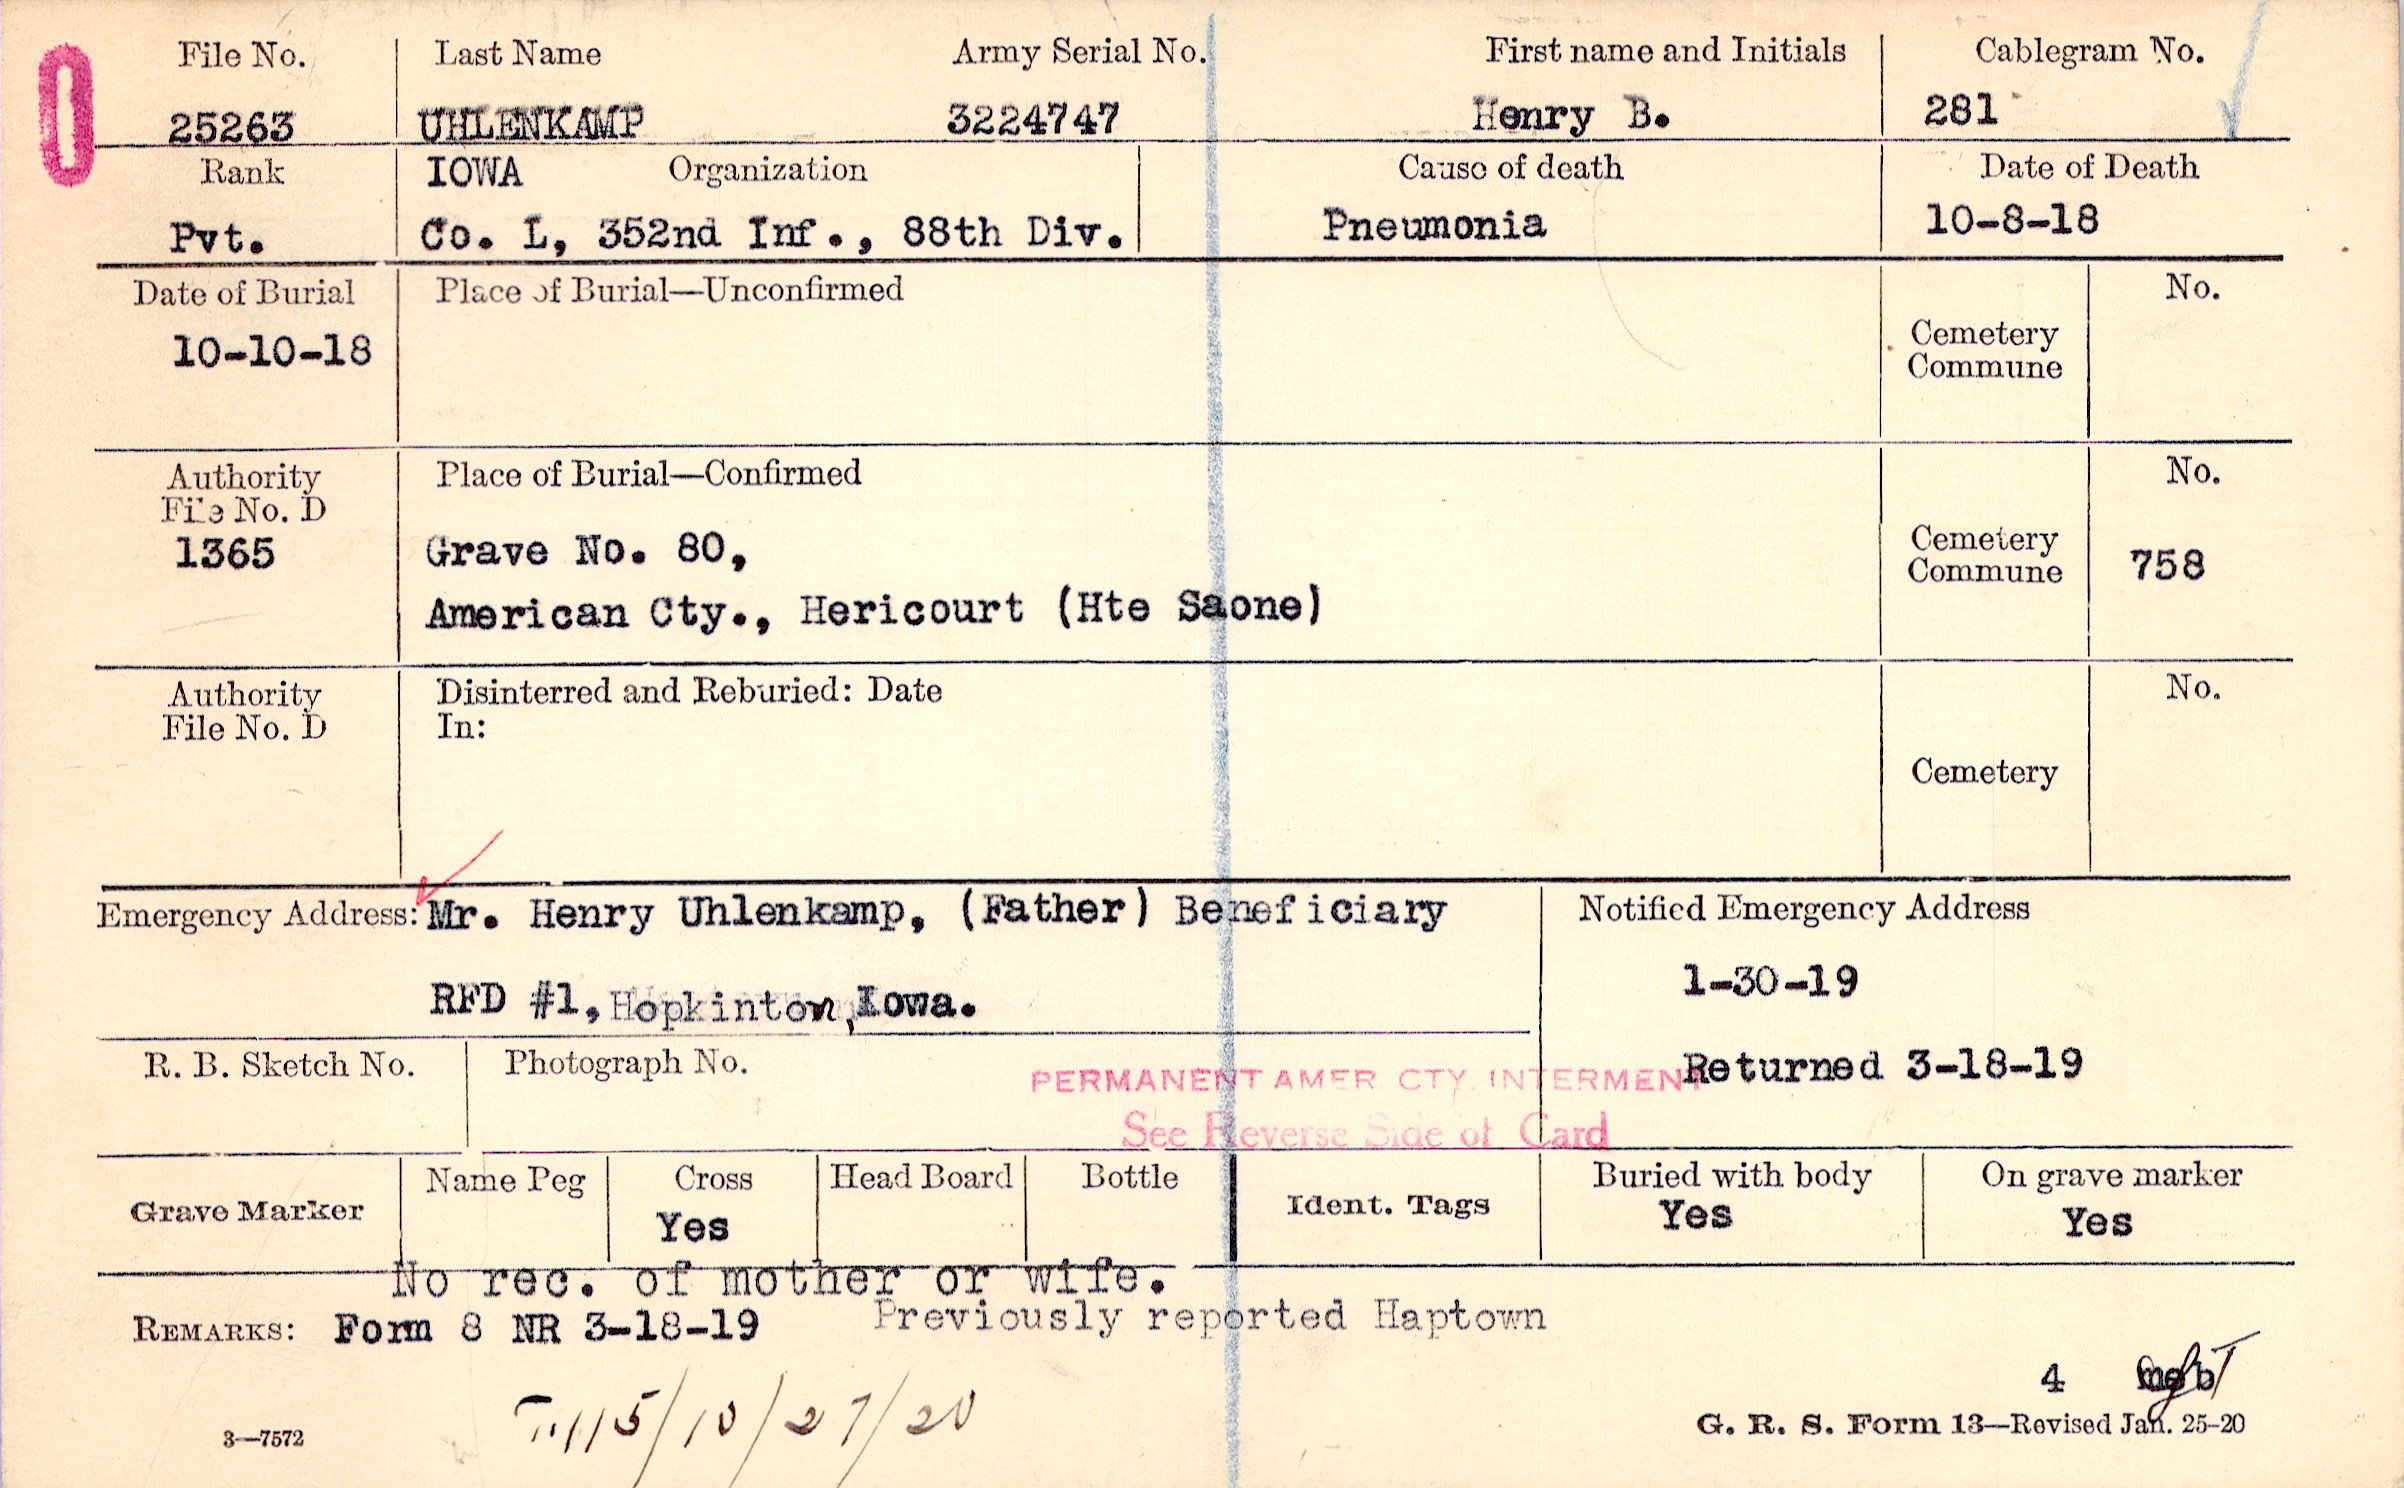 File No. Last Name Army Serial No. First name and Initials Cablegram No.
25263 UHLENKAMP 3224747 Henry B. 281
Rank IOWA Organization Cause of death Date of Death
Pvt. Co. L, 352nd Inf., 88th Div. Pneumonia 10-8-18
Date of Burial Place of Burial—Unconfirmed No.
10-10-18 Cemetery
Commune
Authority Place of Burial—Confirmed No.
File No. D
1365 Grave No. 80, Cemetery
Commune 758
American Cty., Hericourt (Hte Saone)
Authority Disinterred and Reburied: Date No.
File No. D In:
Cemetery
Emergency Address: Mr. Henry Uhlenkamp, (Father) Beneficiary Notified Emergency Address
RFD #1, Hopkinton, Iowa. 1-30-19
R. B. Sketch No. Photograph No. Returned 3-18-19
PERMANENT AMER CTY. INTERMENT
See Reverse Side of Card
Grave Marker Name Peg Cross Head Board Bottle Ident. Tags Buried with body On grave marker
Yes Yes Yes
No rec. of mother or wife.
REMARKS: Form 8 NR 3-18-19 Previously reported Haptown
4
/10/27/20
3—7572 G. R. S. Form 13—Revised Jan. 25-20